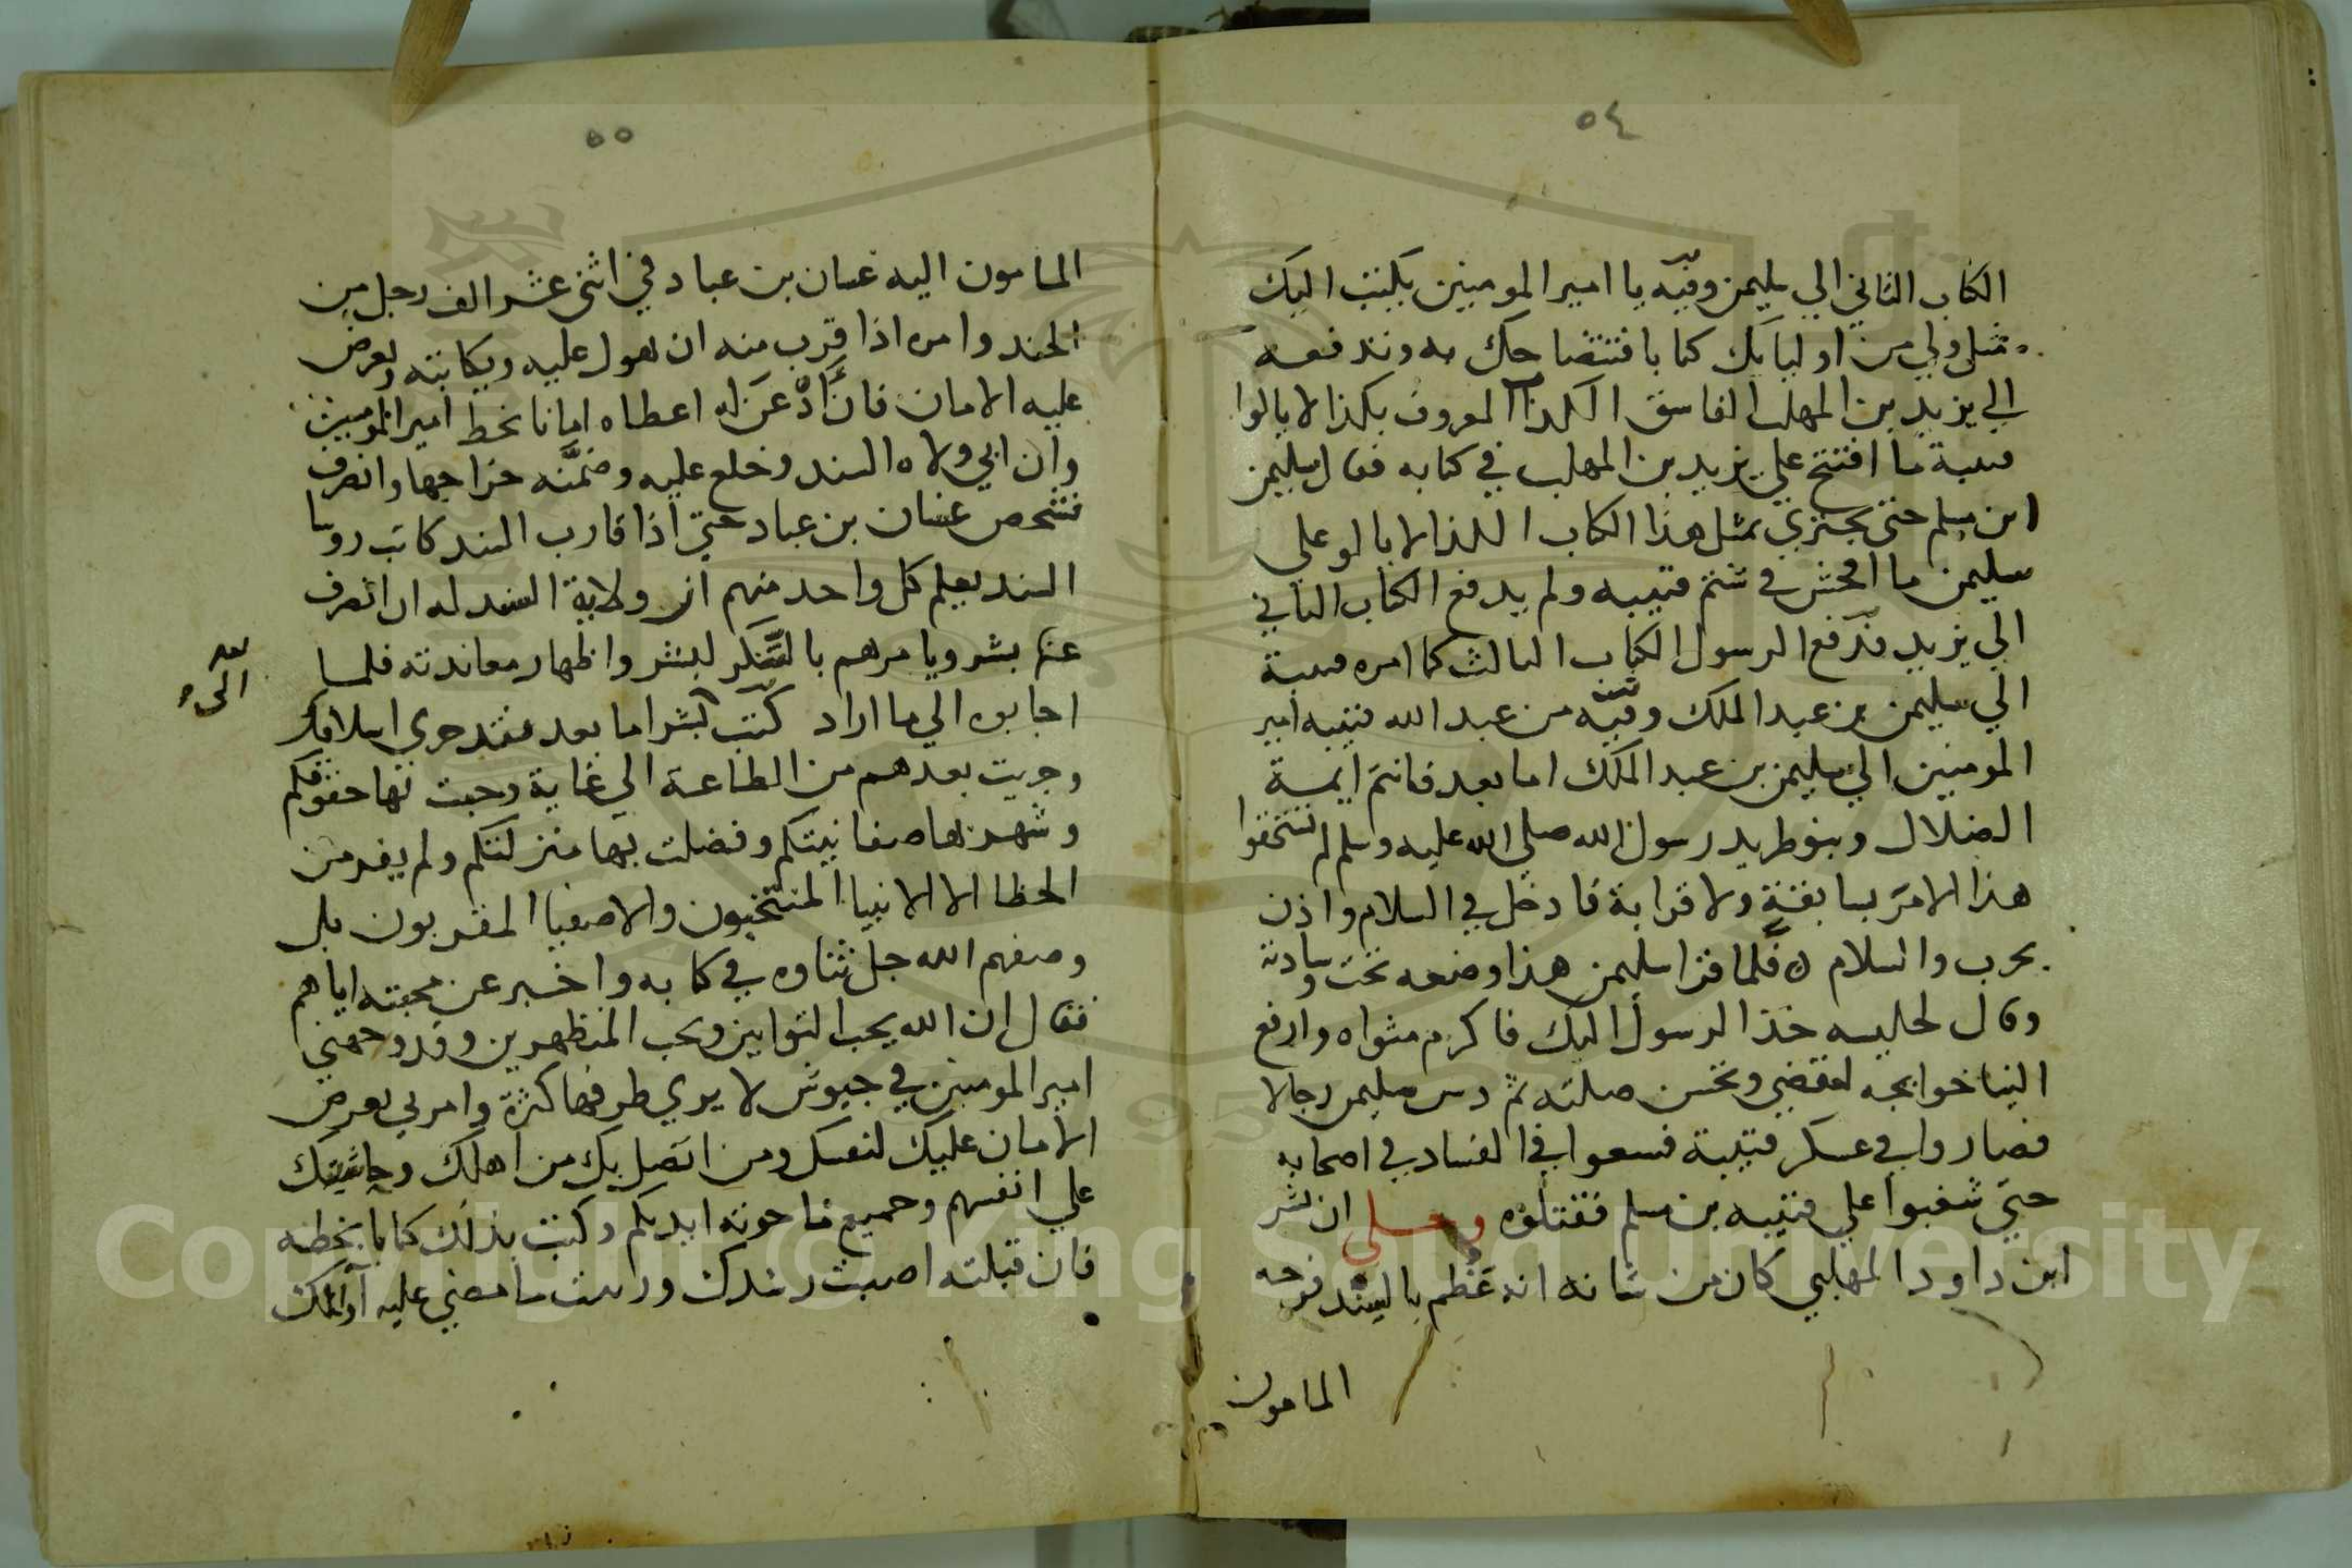 ٥٤
الكتاب الثاني الي سليمن وفيه يا امير المومنين يكتب اليك
مثلي ولي من اوليايك كتابا فتتضاحك به وتدفعه
الي يزيد بن المهلب الفاسق الكذا المعروف بكذا لا يالوا
قتيبة ما افتتح علي يزيد بن المهلب في كتابه فقال سليمن
ابن مسلم حتي يجتري بمثل هذا الكتاب اللذا لا يالو علي
سليمن ما افحش في شتم قتيبه ولم يدفع الكتاب الثاني
الي يزيد فدفع الرسول الكتاب الثالث كما امره قتيبة
الي سليمن بن عبد الملك وفيه من عبد الله قتيبه امير
المومنين الي سليمن بن عبد الملك اما بعد فانتم ايمة
الضلال وبنو طريد رسول الله صلي الله عليه وسلم لم تستحقوا
هذا الامر بسابقة ولا قرابة فادخل في السلام واذن
بحرب والسلام ه فلما قرا سليمن هذا وضعه تحت وسادته
وقال لجليسه خذ الرسول اليك فاكرم مثواه وارفع
الينا حوايجه لتقضي وتحسن صلته ثم دس سليمن رجالا
فصاروا في عسكر قتيبة فسعوا في الفساد في اصحابه
حتي شغبوا علي قتيبه بن مسلم فقتلوه وحكي ان بشر
ابن داود المهلبي كان من شانه انه عظم بالسند فوجه
المامون
٥٥
المامون اليه غسان بن عباد في اثني عشر الف رجل من
الجند وامره اذا قرب منه ان يعول عليه ويكاتبه ويعرض
عليه الامان فان اذعن له اعطاه امانا بخط امير المومنين
وان ابي ولاه السند وخلع عليه وضمنه خراجها وانصرف
فشخص غسان بن عباد حتي اذا قارب السند كاتب روسا
السند يعلم كل واحد منهم ان ولاية السند له ان انصرف
عنها بشر ويامرهم بالتنكر لبشر واظهار معاندته فلما
اجابوه الي ما اراد كتب لبشر اما بعد فقد جري اسلافك
وجريت بعدهم من الطاعة الي غاية وجبت بها حقوقكم
وشهد بها صفا نيتكم وفضلت بها منزلتكم ولم يفد من
الحظا الا الانبيا المنتخبون والاصفيا المقربون بل
وصفهم الله جل ثناوه في كتابه واخبر عن محبته اياهم
فقال ان الله يحب التوابين ويحب المتطهرين وقد وجهني
امير المومنين في جيوش لا يري طرفها كثرة وامرني بعرض
الامان عليك لنفسك ومن اتصل بك من اهلك وحاشيتك
علي انفسهم وجميع ما حوته ايديكم وكتب بذلك كتابا بخطه
فان قبلته اصبت رشدك وراست ما مضي عليه اولئك